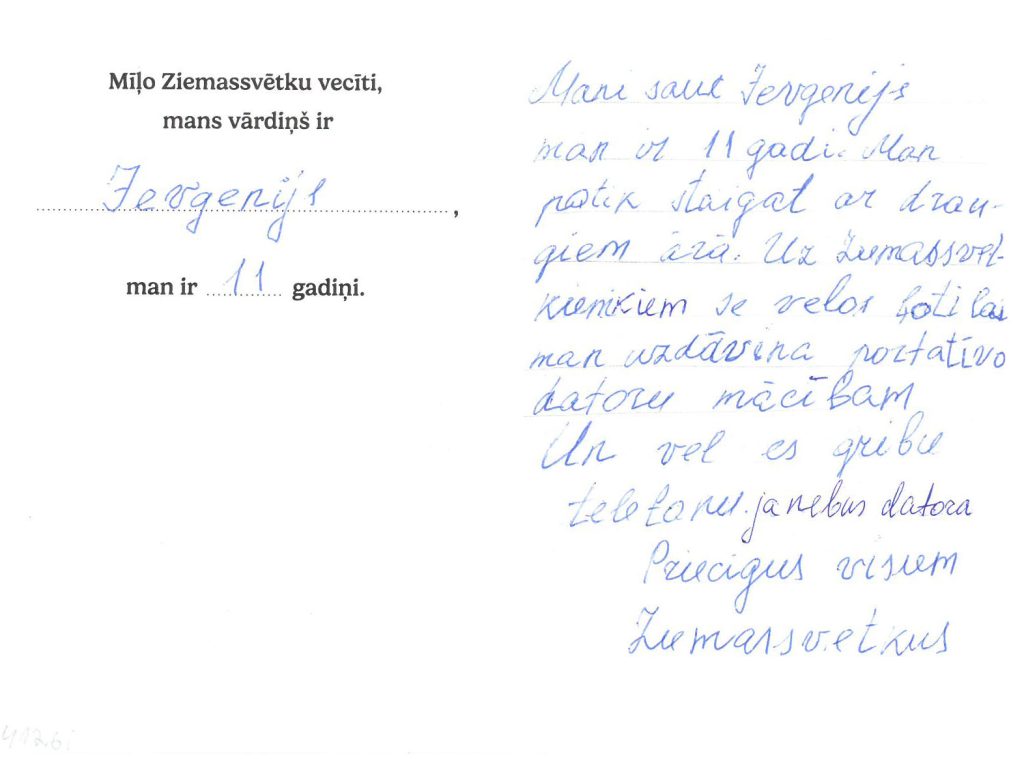 Mīļo Ziemassvētku vecīti,
mans vārdiņš ir
Jevgenijs,
man ir 11 gadiņi.
Mani sauc Jevgenijs
man ir 11 gadi. Man
patik staigat ar drau-
giem ārā. Uz Ziemassvet-
kiem se velos ļoti lai
man uzdāvina portatīvo
datoru mācībam
Un vel es gribu
telefonu. ja nebus datora
Priecigus visiem
Ziemassvetkus